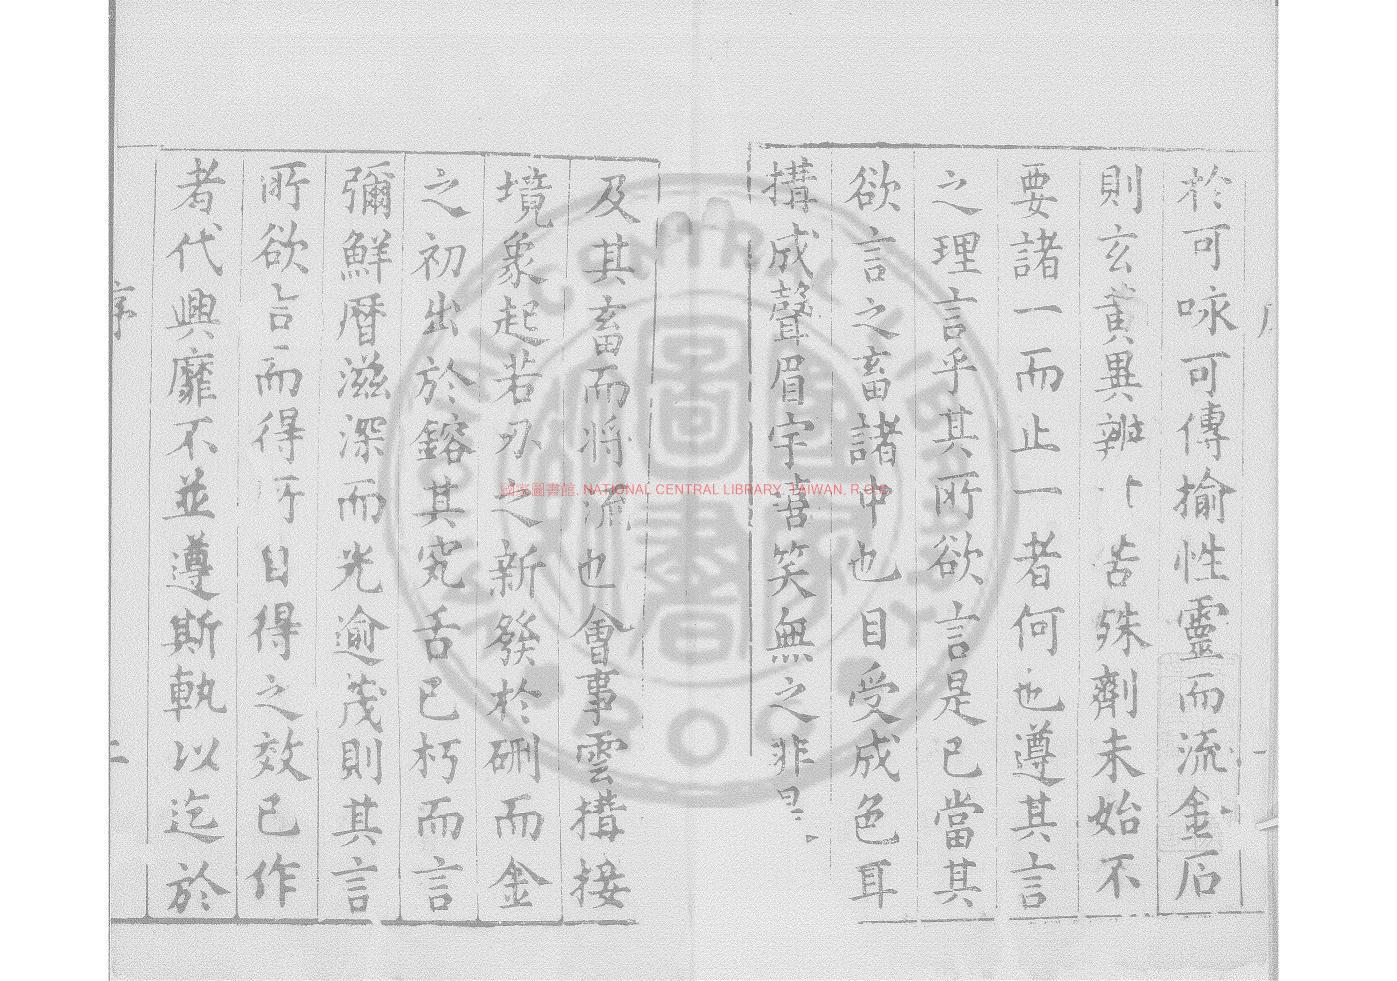 於可咏可傳揄性靈而流金石
則玄黃異辦 苦殊劑未始不
要諸一而止一者何也遵其言
之理言乎其所欲言是已當其
欲言之畜諸中也目受成色耳
搆成聲眉宇嘻笑無之非是
及其畜而將流也會事雲搆接
境象起若刃之新發於硎而金
之初出於鎔其究舌已朽而言
彌鮮曆滋深而光逾茂則其言
所欲言而得所自得之效已作
者代興靡不並遵斯執以迄於
序
二
國家圖書館, NATIONAL CENTRAL LIBRARY, TAIWAN, R.O.C.